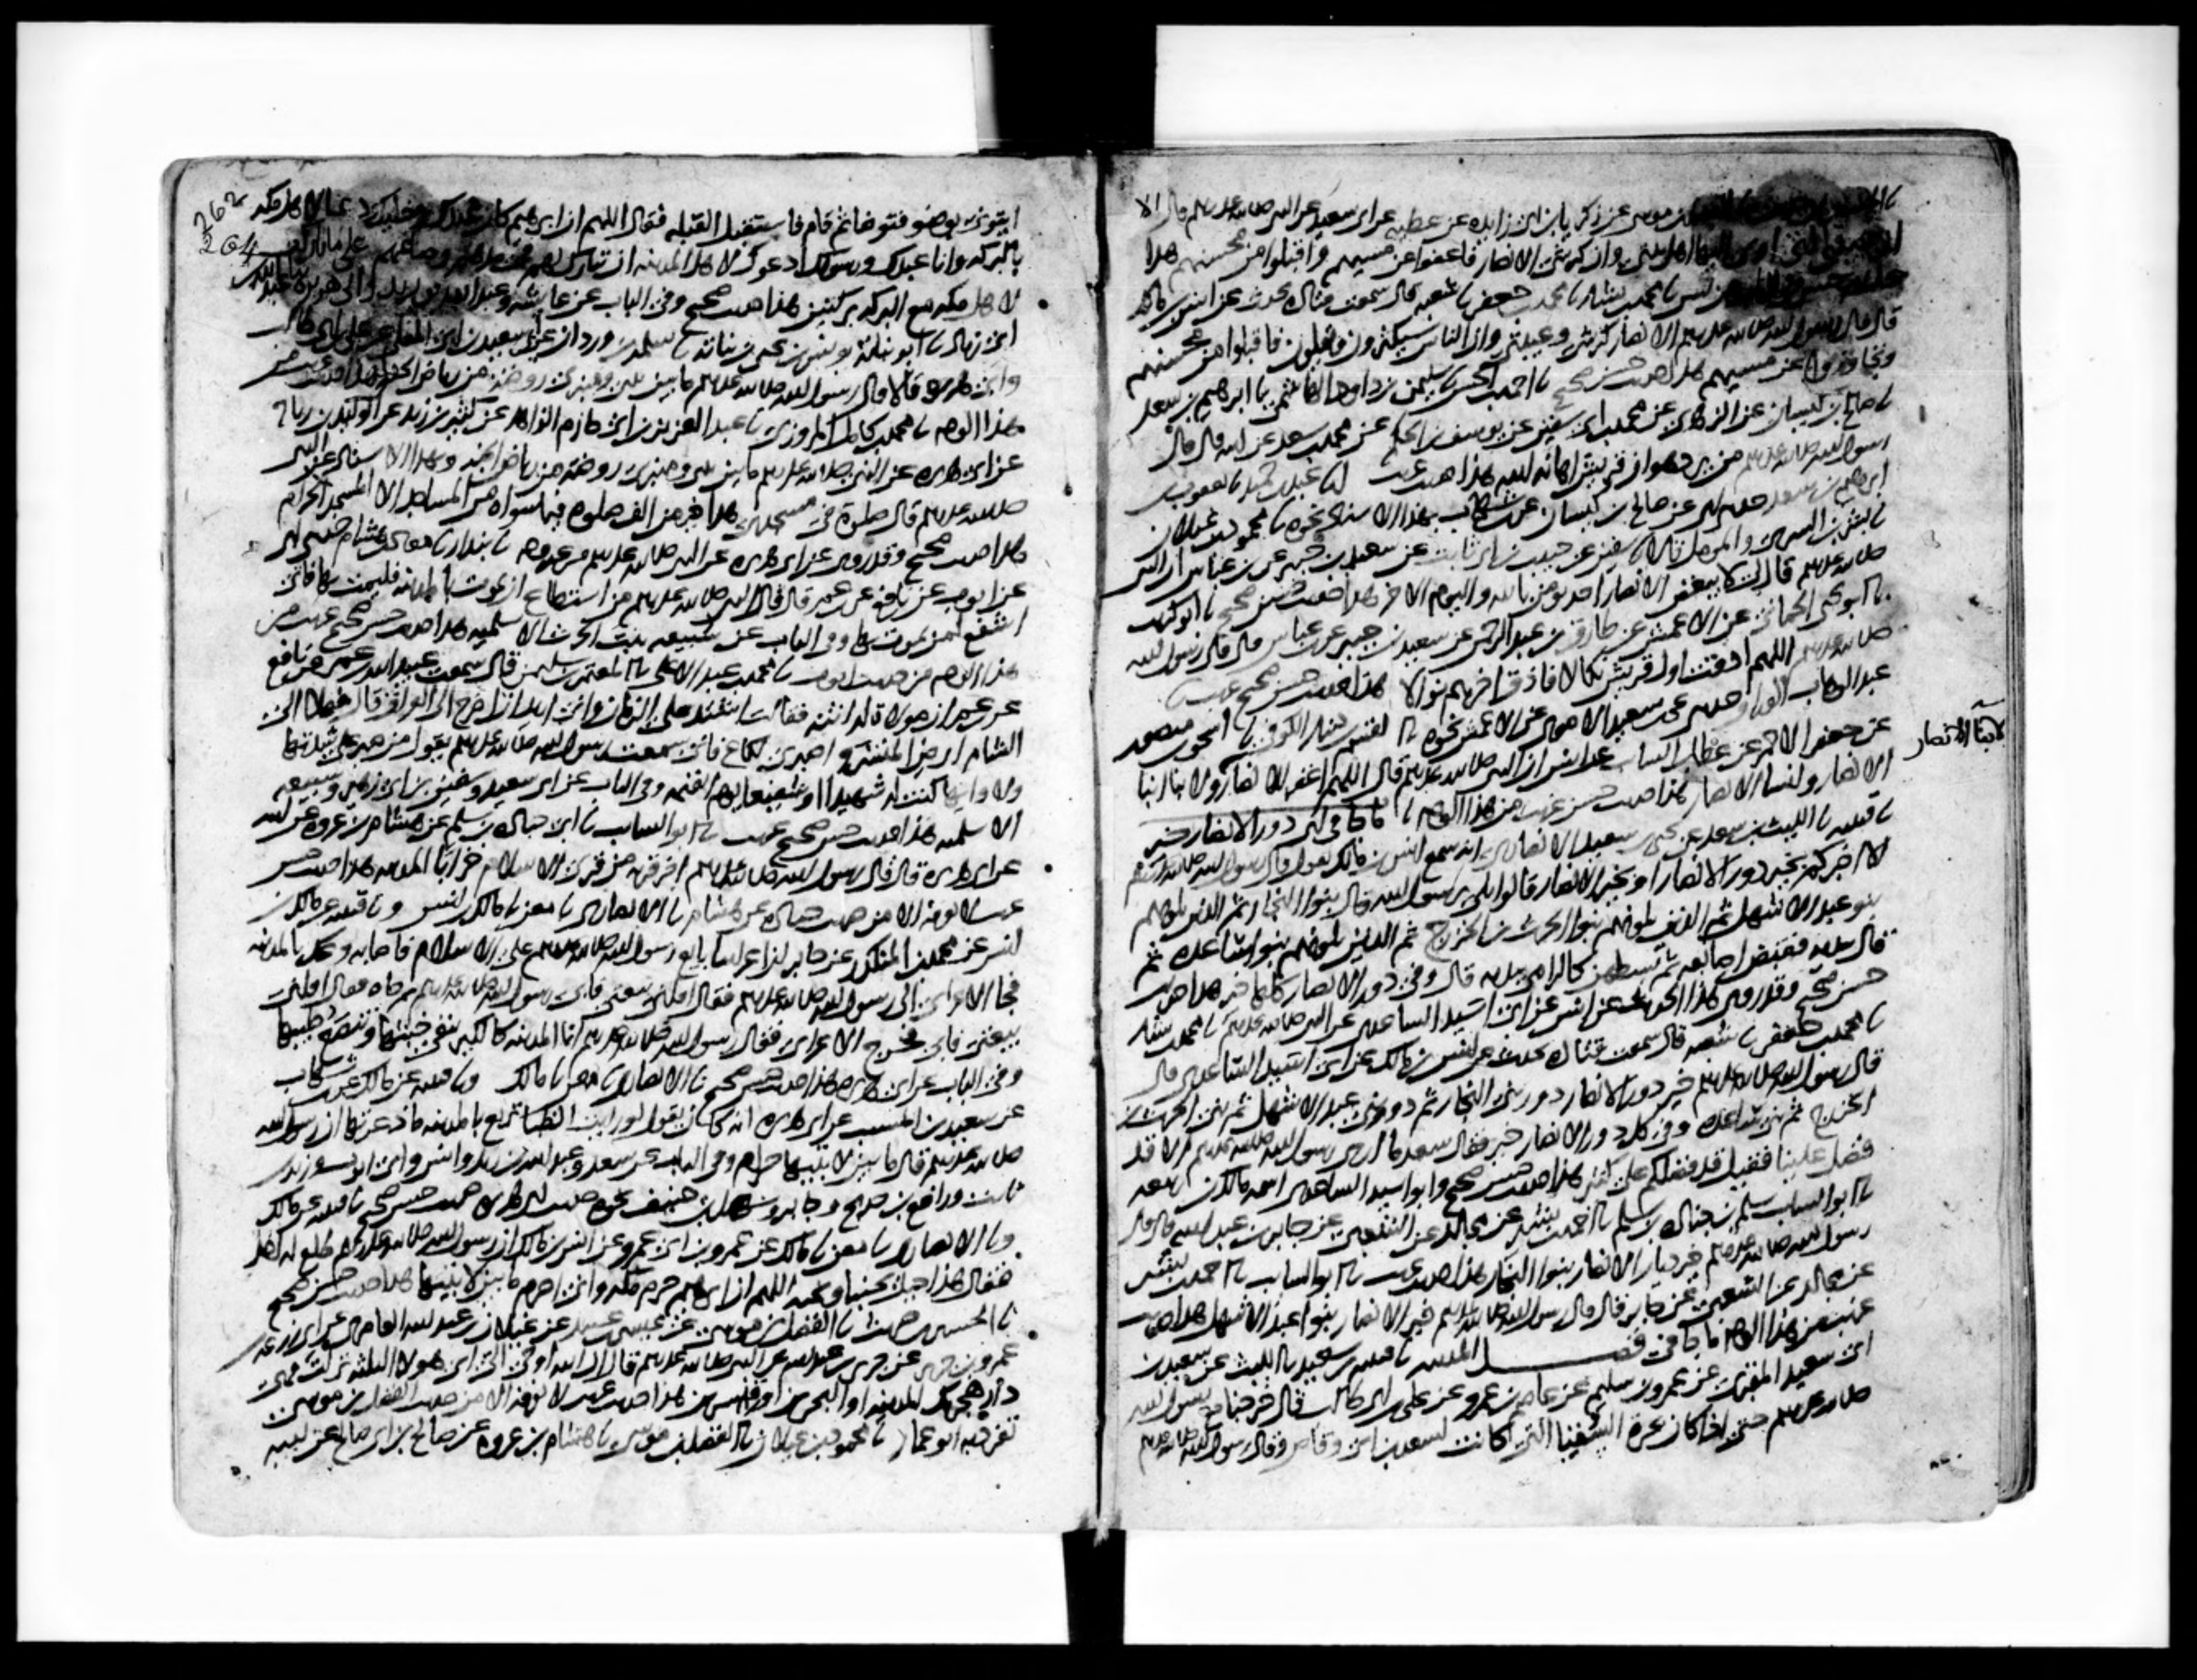 بن موسى عن زكريا بن ابى زايده عن عطيه عن ابى سعيد عن النبى صلى الله عليه وسلم قال الا
ان عيبتى التى اوى اليها اهل بيتى وان كرشى الانصار فاعفوا عن مسيهم واقبلوا من محسنهم هذا
حديث حسن نا محمد بن بشار نا محمد بن جعفر نا شعبه قال سمعت قتاده يحدث عن انس بن مالك
قال قال رسول الله صلى الله عليه وسلم الانصار كرشى وعيبتى وان الناس سيكثرون ويقلون فاقبلوا من محسنهم
وتجاوزوا عن مسيهم هذا حديث حسن صحيح نا احمد بن الحسن نا سليمن بن داود الهاشمى نا ابرهيم بن سعد
نا صالح بن كيسان عن الزهرى عن محمد بن ابى سفين عن يوسف بن الحكم عن محمد بن سعد عن ابيه قال قال
رسول الله صلى الله عليه وسلم من يرد هوان قريش اهانه الله هذا حديث غريب انا عبد بن حميد نا يعقوب بن
ابرهيم بن سعد حدثنى ابى عن صالح بن كيسان عن ابن شهاب بهذا الاسناد نحوه نا محمود بن غيلان
نا بشر بن السرى والمومل قالا نا سفين عن حبيب بن ابى ثابت عن سعيد بن جبير عن ابن عباس ان النبى
صلى الله عليه وسلم قال لى لا يبغض الانصار احد يومن بالله واليوم الاخر هذا حديث حسن صحيح نا ابو كريب
نا ابو يحيى الحمانى عن الاعمش عن طارق بن عبد الرحمن عن سعيد بن جبير عن ابن عباس قال قال رسول الله
صلى الله عليه وسلم اللهم اذقت اول قريش نكالا فاذق اخرهم نوالا هذا حديث حسن صحيح غريب نا
عبد الوهاب الوراق حدثنى يحيى بن سعيد الاموى عن الاعمش نحوه نا القسم بن دينار الكوفى نا اسحق بن منصور
عن جعفر الاحمر عن عطا بن السايب عن انس ان النبى صلى الله عليه وسلم قال اللهم اغفر للانصار ولابنا ابنا
لابنا الانصار
الانصار ولنسا الانصار هذا حديث حسن غريب من هذا الوجه نا ما جا فى اى دور الانصار خير
نا قتيبه نا الليث بن سعد عن يحيى بن سعيد الانصارى انه سمع انس بن مالك يقول قال رسول الله صلى الله عليه وسلم
الا اخبركم بخير دور الانصار او بخير الانصار قالوا بلى يا رسول الله قال بنوا النجار ثم الذين يلونهم
بنو عبد الاشهل ثم الذين يلونهم بنوا الحرث بن الخزرج ثم الذين يلونهم بنوا ساعده ثم
قال بيده فقبض اصابعه ثم بسطهن كالرامى بيديه قال وفى دور الانصار كلها خير هذا حديث
حسن صحيح وقد روى هذا الحديث عن انس عن ابى اسيد الساعدى عن النبى صلى الله عليه وسلم نا محمد بن بشار
نا محمد بن جعفر نا شعبه قال سمعت قتاده يحدث عن انس بن مالك عن ابى اسيد الساعدى قال
قال رسول الله صلى الله عليه وسلم خير دور الانصار دور بنى النجار ثم دور بنى عبد الاشهل ثم بنى الحرث بن
الخزرج ثم بنى ساعده وفى كل دور الانصار خير فقال سعد ما ارى رسول الله صلى الله عليه وسلم الا قد
فضل علينا فقيل قد فضلكم على كثير هذا حديث حسن صحيح وابو اسيد الساعدى اسمه مالك بن ربيعه
نا ابو السايب سلم بن جناده بن سلم نا احمد بن بشير عن مجالد عن الشعبى عن جابر بن عبد الله قال قال
رسول الله صلى الله عليه وسلم خير ديار الانصار بنوا النجار هذا حديث غريب نا ابو السايب نا احمد بن بشير
عن مجالد عن الشعبى عن جابر قال قال رسول الله صلى الله عليه وسلم خير الانصار بنوا عبد الاشهل هذا حديث
غريب من هذا الوجه ما جا فى فضل المدينه نا قتيبه بن سعيد نا الليث عن سعيد بن
ابى سعيد المقبرى عن عمرو بن سليم عن عاصم بن عمرو عن على بن ابى طالب قال خرجنا مع رسول الله
صلى الله عليه وسلم حتى اذا كان بحرة السقيا التى كانت لسعد بن ابى وقاص فقال رسول الله صلى الله عليه وسلم
262
264
ايتونى بوضو فتوضا ثم قام فاستقبل القبله فقال اللهم ان ابرهيم كان عبدك وخليلك دعا لاهل مكه
بالبركه وانا عبدك ورسولك ادعوك لاهل المدينه ان تبارك لهم فى مدهم وصاعهم مثلى ما باركت
لاهل مكه مع البركه بركتين هذا حديث صحيح وفى الباب عن عايشه وعبد الله بن زيد وابى هريره نا عبد الله بن
ابى زياد نا ابو نباته يونس بن يحيى بن نباته نا سلمه بن وردان عن ابى سعيد بن ابى المعلى عن على بن ابى طالب
وابى هريره قالا قال رسول الله صلى الله عليه وسلم ما بين بيتى ومنبرى روضه من رياض الجنه هذا حديث غريب من
هذا الوجه نا محمد بن كامل المروزى نا عبد العزيز بن ابى حازم الزاهد عن كثير بن زيد عن الوليد بن رباح
عن ابى هريره عن النبى صلى الله عليه وسلم ما بين بيتى ومنبرى روضه من رياض الجنه وبهذا الاسناد عن النبى
صلى الله عليه وسلم قال صلوة فى مسجدى هذا خير من الف صلوة فيما سواه من المساجد الا المسجد الحرام
هذا حديث صحيح وقد روى عن ابى هريره عن النبى صلى الله عليه وسلم من غير وجه نا بندار نا معاذ بن هشام حدثنى ابى
عن ايوب عن نافع عن ابن عمر قال قال النبى صلى الله عليه وسلم من استطاع ان يموت بالمدينه فليمت بها فانى
اشفع لمن يموت بها وفى الباب عن سبيعه بنت الحرث الاسلميه هذا حديث حسن صحيح غريب من
هذا الوجه من حديث ايوب نا محمد بن عبد الاعلى نا المعتمر بن سليمن قال سمعت عبيد الله بن عمر عن نافع
عن ابن عمر ان مولاة له اتته فقالت اشتد على الزمان وانى اريد ان اخرج الى العراق قال فهلا الى
الشام ارض المنشر اصبرى لكاع فانى سمعت رسول الله صلى الله عليه وسلم يقول من صبر على شدتها
ولاوايها كنت له شهيدا او شفيعا يوم القيمه وفى الباب عن ابى سعيد وسفين بن ابى زهير وسبيعه
الاسلميه هذا حديث حسن صحيح غريب نا ابو السايب نا ابى جناده بن سلم عن هشام بن عروه عن ابيه
عن ابى هريره قال قال رسول الله صلى الله عليه وسلم اخر قريه من قرى الاسلام خرابا المدينه هذا حديث حسن
غريب لا نعرفه الا من حديث جناده عن هشام نا الانصارى نا معن نا مالك بن انس ونا قتيبه عن مالك بن
انس عن محمد بن المنكدر عن جابر ان اعرابيا بايع رسول الله صلى الله عليه وسلم على الاسلام فاصابه وعك بالمدينه
فجا الاعرابى الى رسول الله صلى الله عليه وسلم فقال اقلنى بيعتى فابى رسول الله صلى الله عليه وسلم ثم جاه فقال اقلنى
بيعتى فابى فخرج الاعرابى فقال رسول الله صلى الله عليه وسلم انما المدينه كالكير تنفى خبثها وتنصع طيبها
وفى الباب عن ابى هريره هذا حديث حسن صحيح نا الانصارى نا معن نا مالك ونا قتيبه عن مالك عن ابن شهاب
عن سعيد بن المسيب عن ابى هريره انه كان يقول لو رايت الظبا ترتع بالمدينه ما ذعرتها ان رسول الله
صلى الله عليه وسلم قال ما بين لابتيها حرام وفى الباب عن سعد وعبد الله بن زيد وانس وابى ايوب وزيد بن
ثابت ورافع بن خديج وجابر وسهل بن حنيف نحوه حديث ابى هريره حديث حسن صحيح نا قتيبه عن مالك
ونا الانصارى نا معن نا مالك عن عمرو بن ابى عمرو عن انس بن مالك ان رسول الله صلى الله عليه وسلم طلع له احد
فقال هذا جبل يحبنا ونحبه اللهم ان ابرهيم حرم مكه وانى احرم ما بين لابتيها هذا حديث حسن صحيح
نا الحسين بن حريث نا الفضل بن موسى عن عيسى بن عبيد عن غيلان بن عبد الله العامرى عن ابى زرعه بن
عمرو بن جرير عن جرير بن عبد الله عن النبى صلى الله عليه وسلم قال ان الله اوحى الى اى هولا الثلثه نزلت فهى
دار هجرتك المدينه او البحرين او قنسرين هذا حديث غريب لا نعرفه الا من حديث الفضل بن موسى
تفرد به ابو عمار نا محمود بن غيلان نا الفضل بن موسى نا هشام بن عروه عن صالح بن ابى صالح عن ابيه